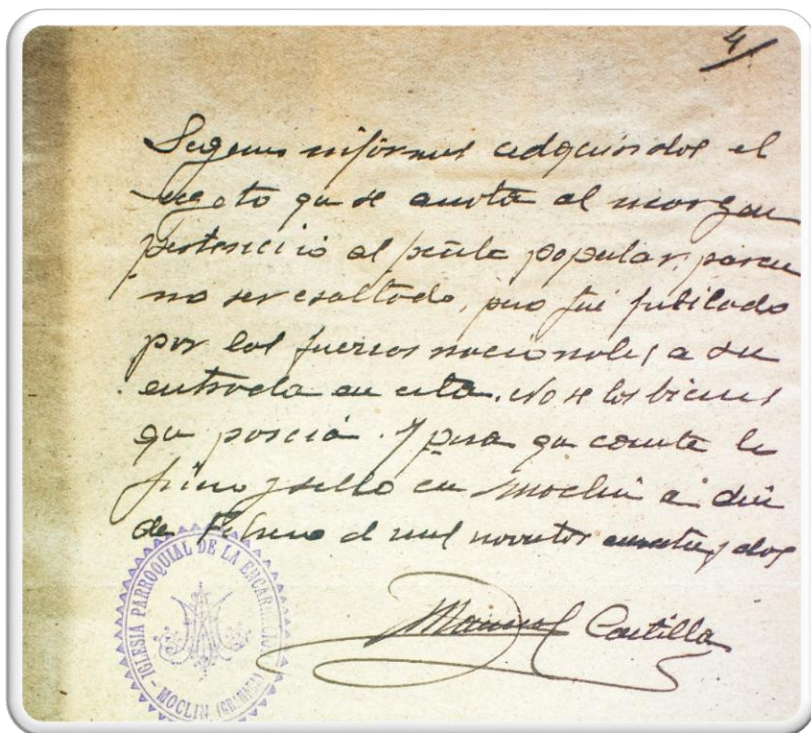 4
Segun informes adquiridos el
sugeto qu se anota al margen
pertenecio al frente popular, parece
no ser exaltado, pero fue fusilado
por las fuerzas nacionales a su
entrada en esta. No se los bienes
qu poseia. Y para qu conste lo
firmo y sello en Moclin a diez
de Febrero d mil noventos cuarenta y dos
IGLESIA PARROQUIAL DE LA ENCARNACION
- MOCLIN (GRANADA) -
Manuel Castilla